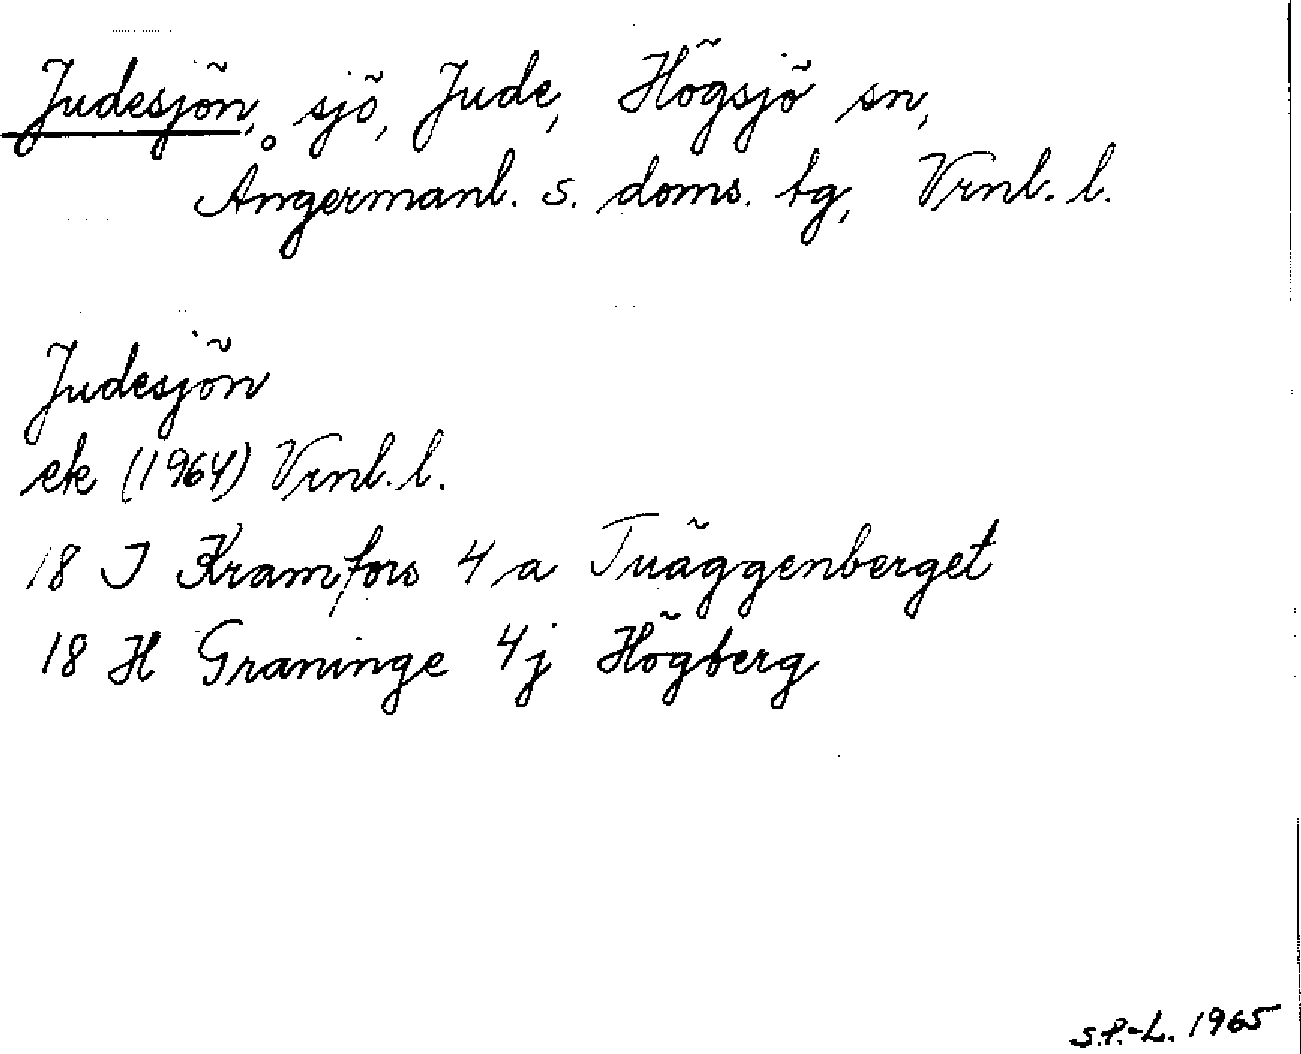 Judesjön, sjö, Jude, Högsjö sn,
Ångermanl. s. doms. tg, Vrnl. l.
Judesjön
ek (1964) Vrnl. l.
18 I Kramfors 4 a Tuäggenberget
18 H Graninge 4j Högberg
S.P.-L. 1965